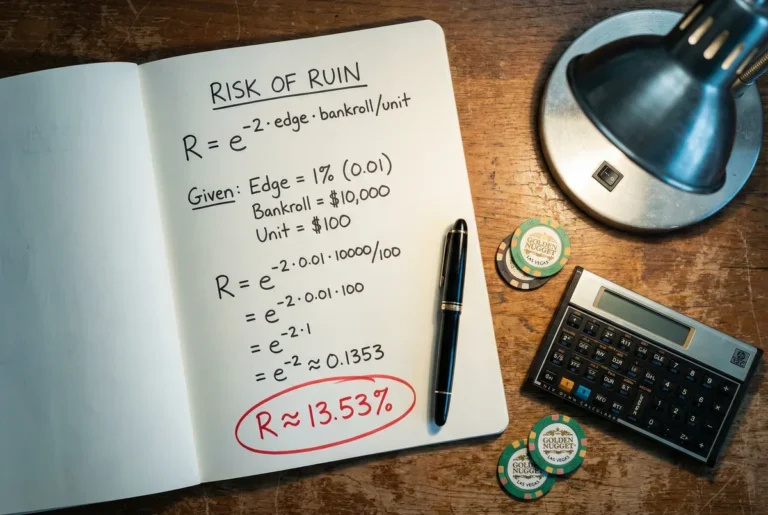 RISK OF RUIN
R = e^-2·edge·bankroll/unit
Given: Edge = 1% (0.01)
Bankroll = $10,000
Unit = $100
R = e^-2·0.01·10000/100
= e^-2·0.01·100
= e^-2·1
= e^-2 ≈ 0.1353
R ≈ 13.53%
GOLDEN
NUGGET
LAS VEGAS
GOLDEN
NUGGET
LAS VEGAS
GOLDEN
NUGGET
LAS VEGAS